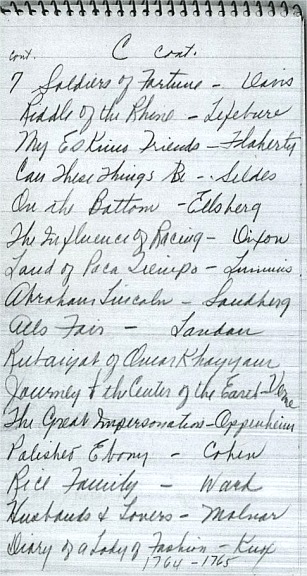 cont.
C cont.
7 Soldiers of Fortune - Davis
Riddle of the Rhine - Lefebure
My Eskimo Friends - Flaherty
Can These Things Be - Seldes
On the Bottom - Ellsberg
The Influence of Racing - Dixon
Land of Poco Tiempo - Lummis.
Abraham Lincoln - Sandberg
All's Fair - Landau
Rubaiyat of Omar Khayyam
Journey to the Center of the Earth - Verne
The Great Impersonation - Oppenheim
Polished Ebony - Cohen
Rice Family - Ward
Husbands & Lovers - Molnar
Diary of a Lady of Fashion - Knox
1764 - 1765